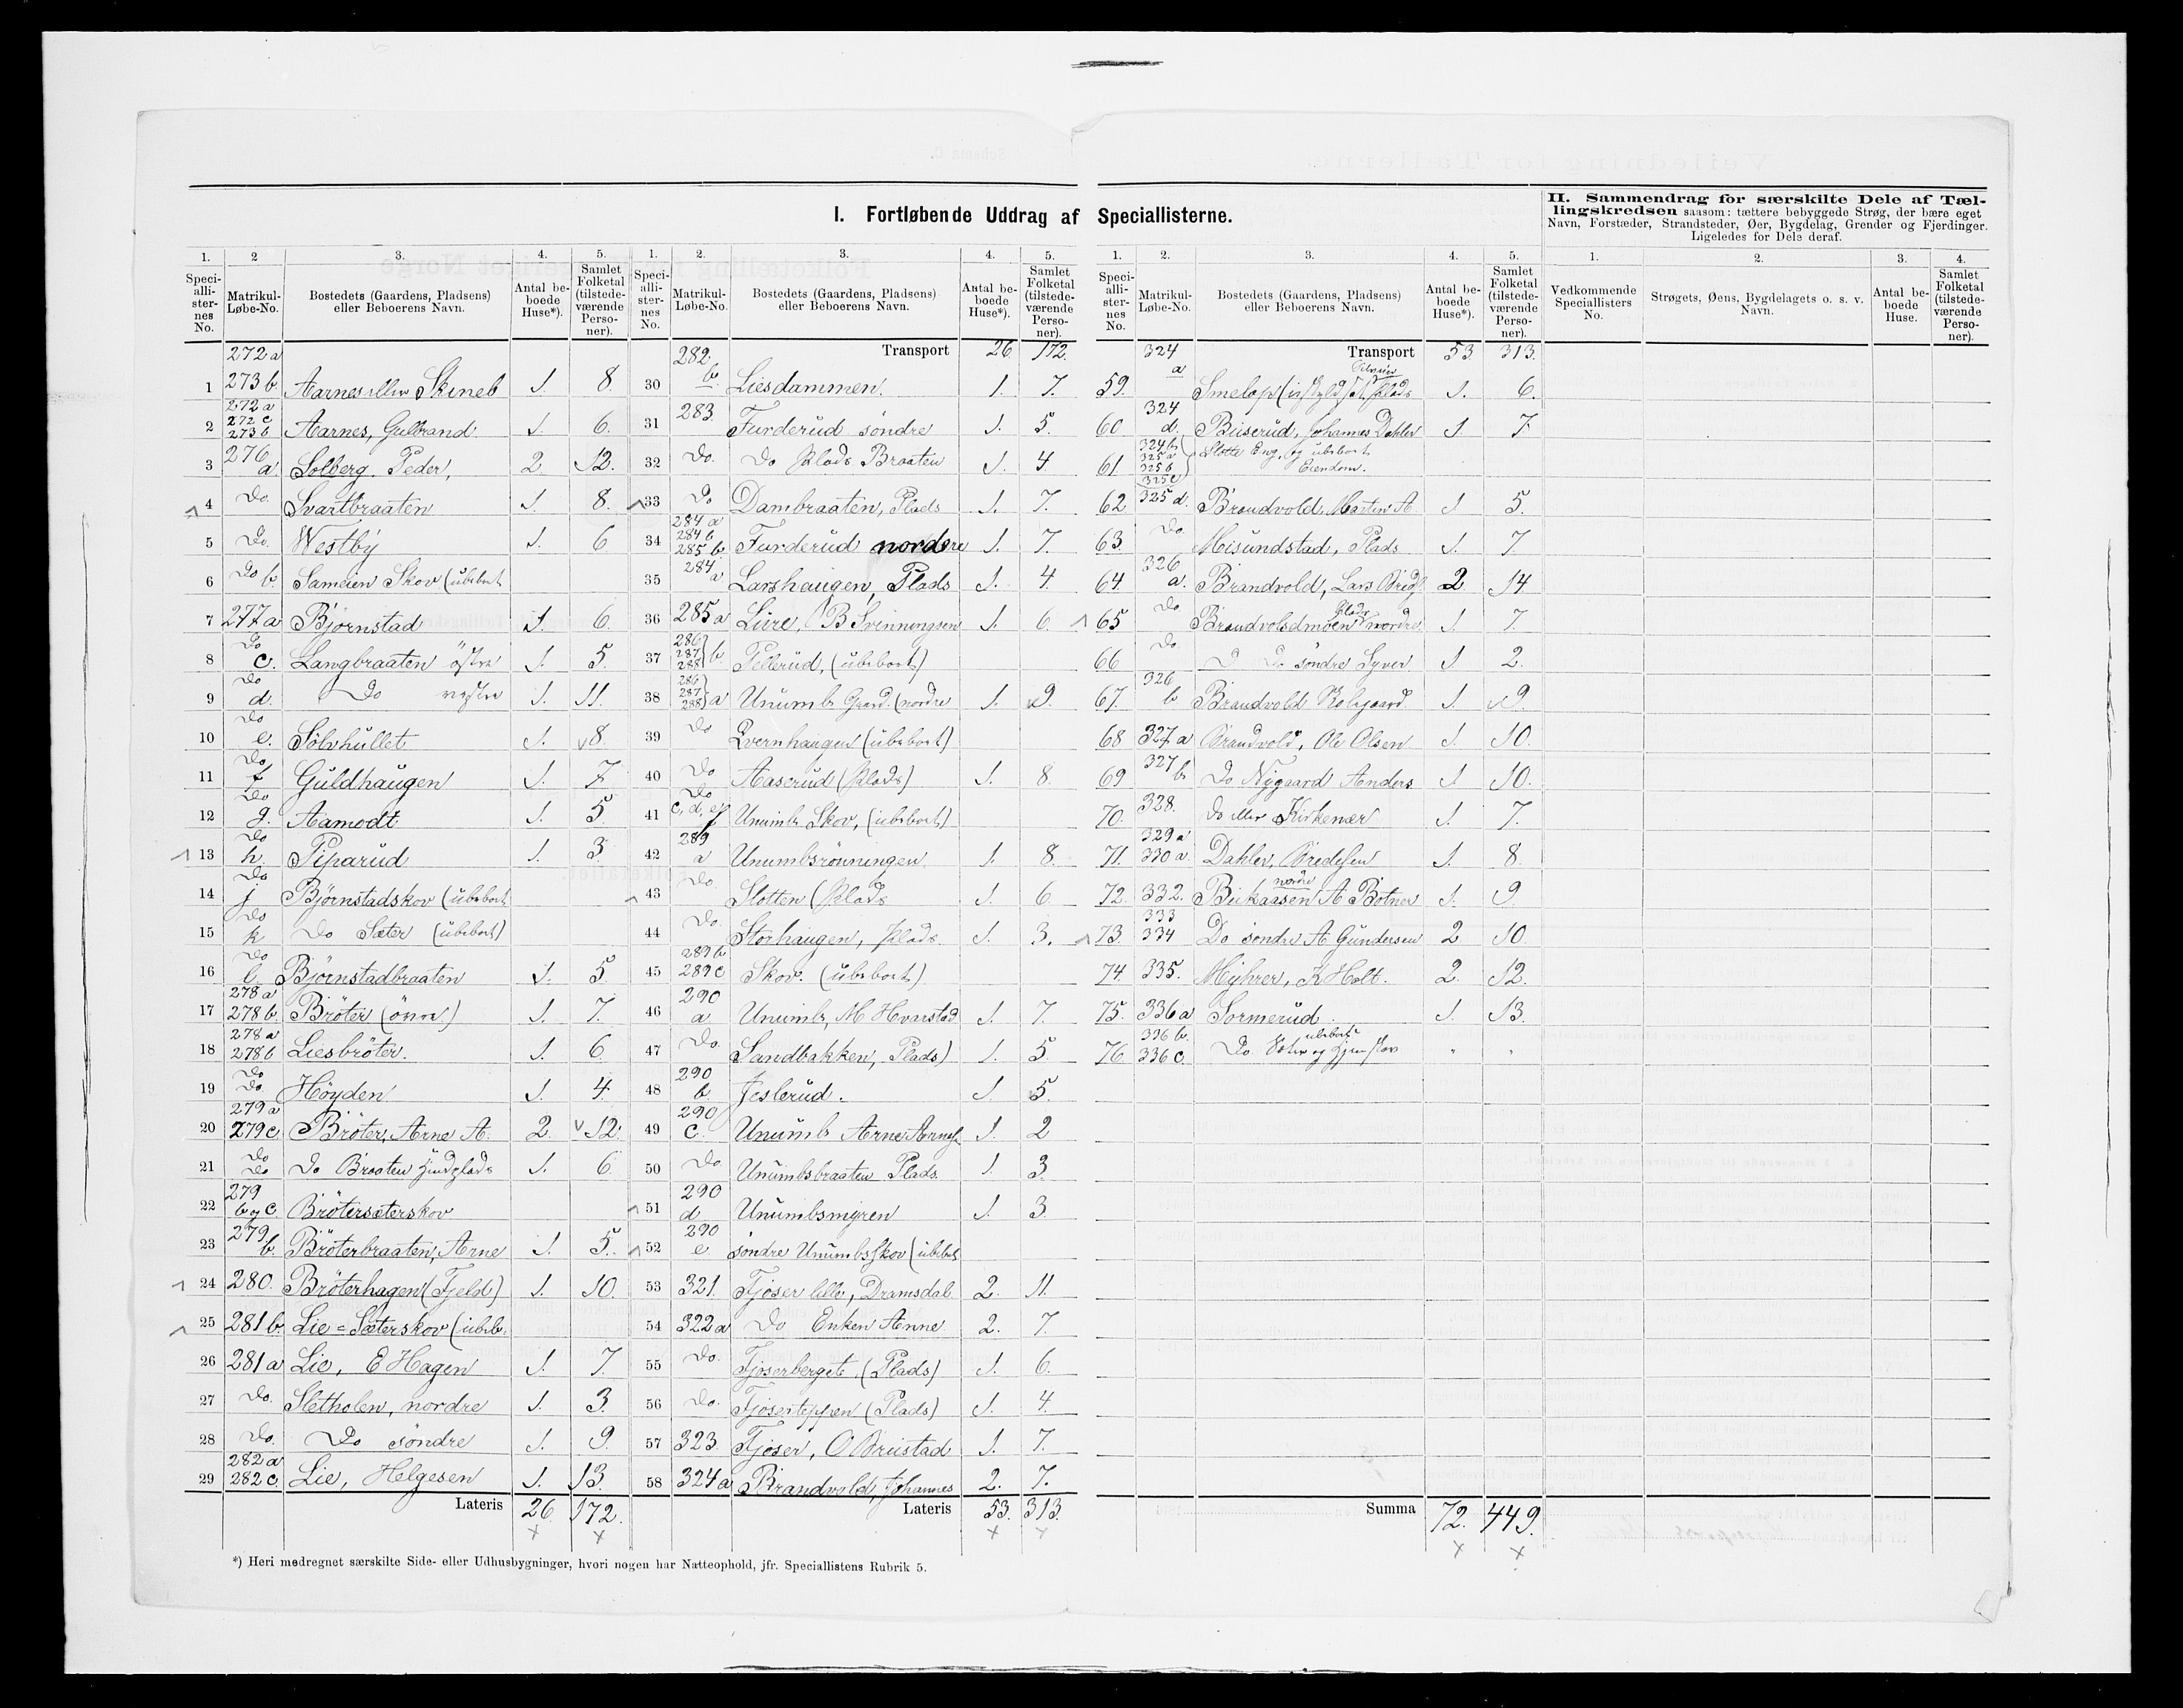 I. Fortløbende Uddrag af Speciallisterne.
1. 2 3. 4. 5.
Speciallisternes No. Matrikul-Løbe-No. Bostedets (Gaardens, Pladsens) eller Beboerens Navn. Antal beboede Huse*). Samlet Folketal (tilstedeværende Personer).
1 272a 273b. Aarnes eller Skineb 1. 8.
2 272a 272c 273b Aarnes, Gulbrand 1. 6.
3 276 a. Solberg. Peder, 2 12.
4 Do. Svartbraaten 1. 8.
5 Do. Westby 1. 6
6 Do b. Sameien Skov (übebot
7 277a Björnstad 1. 6.
8 Do c. Langbraaten östre 1. 5.
9 Do d. Do vestre 1. 11.
10 Do e. Sölvhullet 1. 8.
11 Do f Güldhaugen 1. 7
12 Do g. Aamodt 1. 5.
13 Do h. Piparud 1. 3.
14 Do j Björnstadskov (übebot
15 Do k Do Sæter (übebot)
16 Do l. Björnstadbraaten 1. 5
17 278a 278b. Bröter (övre) 1. 7.
18 278a 278b Liesbröter. 1. 6
19 Do Do Höyden 1. 4.
20 279a 279c. Bröter, Arne A. 2. 12.
21 Do Do Do Braaten 1. 6.
22 279 b og c. Brötersæterskov
23 279 b. Bröterbraaten, Arne 1. 5.
24 280. Bröterhagen (Fjeld) 1. 10.
25 281b. Lie=Sæterskov (übeb.
26 281a Lie, E Hagen 1. 7.
27 Do. Sletholen, nordre 1. 3.
28 Do. Do söndre 1. 9.
29 282a 282c. Lie, Helgesen 1. 13.
Lateris 26. 172.
*) Heri medregnet særskilte Side- eller Udhusbygninger, hvori nogen har Natteophold, jfr. Speciallistens Rubrik 5.
1. 2. 3. 4. 5.
Speciallisternes No. Matrikul-Løbe-No. Bostedets (Gaardens, Pladsens) eller Beboerens Navn. Antal beboede Huse*). Samlet Folketal (tilstedeværende Personer).
Transport 26 172.
30 282. b. Liesdammen. 1. 7.
31 283. Furderud söndre 1. 5.
32 Do. Do Plads Braaten 1. 4.
33 Do Dambraaten, Plads 1. 7.
34 284a 284b 285b Furderud nordere 1. 7.
35 284 a Larshaugen, Plads 1. 4.
36 285a Liere, B Svenningsen 1. 6.
37 286 287 288 b. Pellerud, (übeboet)
38 286 287 288 a Unumb Gaard. (nordre 1. 9.
39 Do Qvernhaugen (übeboet)
40 Do Aaserud (Plads) 1. 8.
41 Do c, d, e, f Unumb Skov, (übeboet)
42 289 a Unumbsrönningen 1. 8.
43 Do. Slotten (Plads 1. 6
44 Do. Storhaugen, Plads. 1. 3.
45 289b 289c Skov. (übeboet)
46 290 a Unumb, M Hvarstad 1. 7.
47 Do. Sandbakken, Plads) 1. 5
48 290 b. Jeslerud. 1 5.
49 290 c. Unumb Arne Arnes. 1. 2
50 Do Unumbsbraaten Plads. 1. 3.
51 290 d Unumbsmyren 1. 3.
52 290 e söndre Unumbsskov (übebot
53 321. Fjöser lille, Dramsdal 2. 11.
54 322a Do Enken Anne 2. 7.
55 Do. Fjöserberget (Plads) 1. 6.
56 Do. Fjöserteppen (Plads) 1. 4.
57 323. Fjöser, O Brüstad 1. 7.
58 324a Brandvold, Johannes 2. 7.
Lateris 53. 313.
1. 2. 3. 4. 5.
Speciallisternes No. Matrikul-Løbe-No. Bostedets (Gaardens, Pladsens) eller Beboerens Navn. Antal beboede Huse*). Samlet Folketal (tilstedeværende Personer).
Transport 53 313.
59. 324 a Smelop Plads 1. 6.
60 324 d. Büserud, Johannes Dahler 1 7
61 324b 325a 325b 325c Slotte Eng, og übeboet Eiendom.
62 325d. Brandvold, Martin A. 1 5.
63. Do Misundstad, Plads 1. 7.
64. 326 a. Brandvold, Lars Bred. 2 14
65 Do Brandvoldmoen Plads nordre 1. 7.
66 Do. D Do söndre Syver 1 2.
67. 326 b Brandvold Kolsgaard 1. 9.
68 327a Brandvold, Ole Olsen 1. 10.
69 327 b Do Nygaard Anders 1 10.
70. 328. Do eller Kirkenær 1. 7.
71. 329a 330a. Dahler, Bredesen 1. 8.
72. 332. Birkaasen nordre A Botner 1. 9.
73. 333 334 Do söndre A Gundersen 2 10.
74. 335. Myhrer, K Holt. 2. 12.
75. 336a Sormerud. 1. 13.
76. 336b. 336c. Do übeboet " "
Summa 72. 449.
II. Sammendrag for særskilte Dele af Tællingskredsen saasom: tættere bebyggede Strøg, der bære eget
Navn, Forstæder, Strandsteder, Øer, Bygdelag, Grender og Fjerdinger.
Ligeledes for Dele deraf.
1. 2. 3. 4.
Vedkommende Speciallisters No. Strøgets, Øens, Bygdelagets o. s. v. Navn. Antal beboede Huse. Samlet Folketal (tilstedeværende Personer).